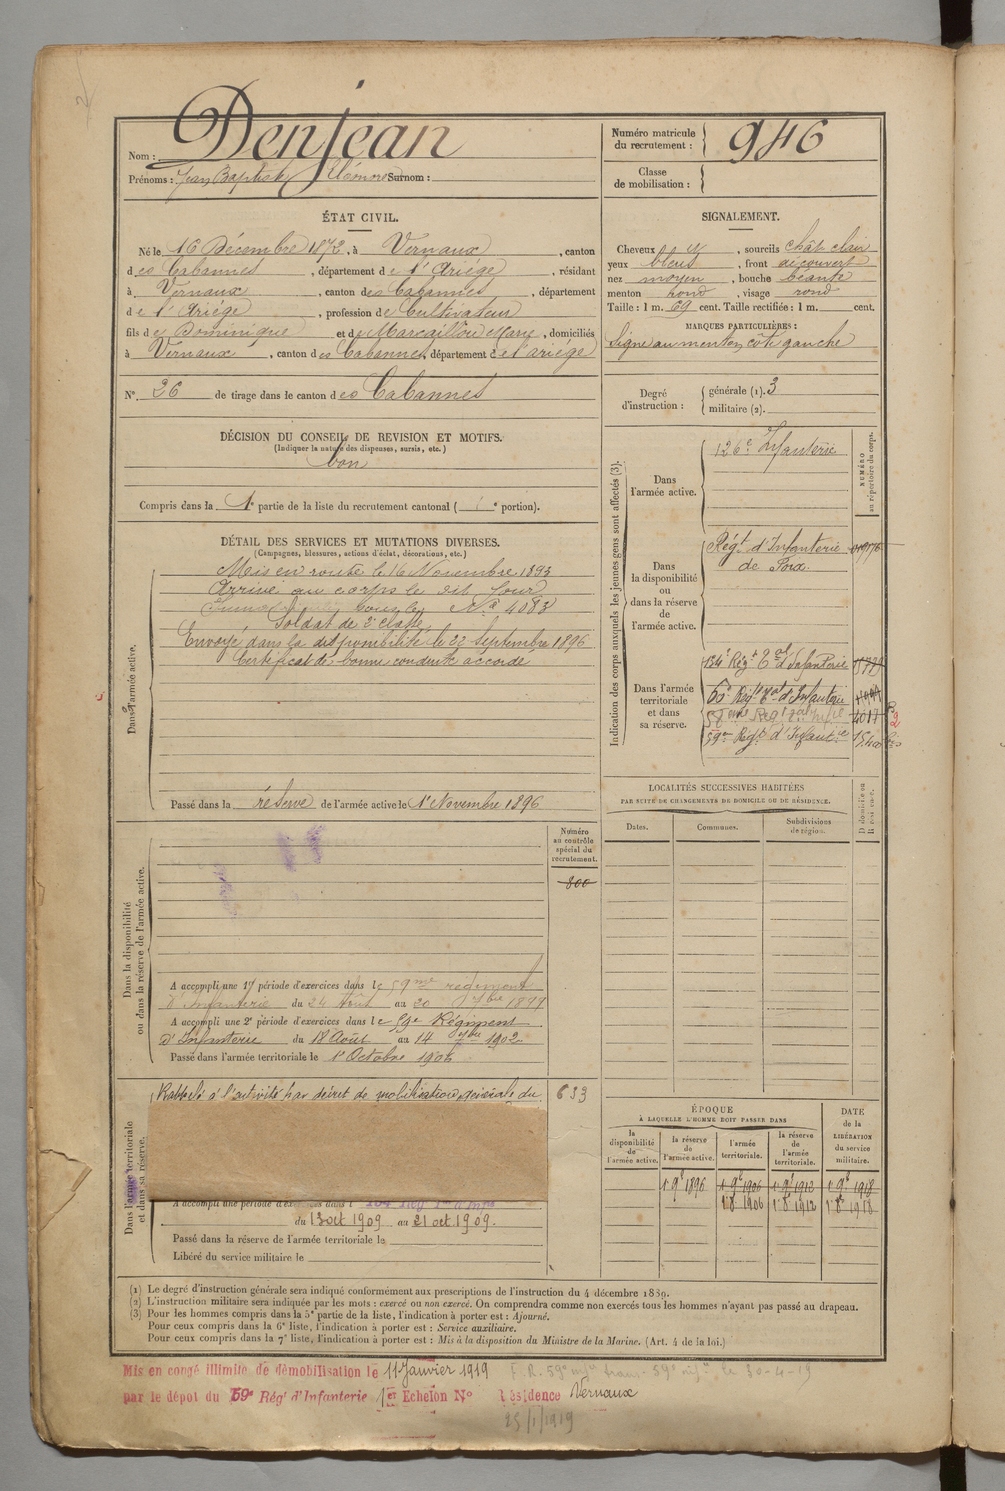 Nom : Denjean
Prénoms : Jean Baptiste Surnom :
Numéro matricule du recrutement : 946
Classe de mobilisation :
ÉTAT CIVIL.
Né le 16 Décembre 1872, à Vernaux, canton
des Cabannes, département de l'Ariége, résidant
à Vernaux, canton des Cabannes, département
de l'Ariége, profession de Cultivateur
fils de Dominique et de Marcaillou Marie, domiciliés
à Vernaux, canton des Cabannes, département de l'ariége
N° 26 de tirage dans le canton des Cabannes
DÉCISION DU CONSEIL DE REVISION ET MOTIFS.
(Indiquer la nature des dispenses, sursis, etc.)
bon
Compris dans la 1e partie de la liste du recrutement cantonal ( e portion).
DÉTAIL DES SERVICES ET MUTATIONS DIVERSES.
(Campagnes, blessures, actions d'éclat, décorations, etc.)
Dans l'armée active.
Mis en route le 16 Novembre 1893
Arrivé au corps le dit jour
N° 4083
Soldat de 2e classe
Envoyé dans la disponibilité le 22 Septembre 1896
Certificat de bonne conduite accordé
Passé dans la réserve de l'armée active le 1er Novembre 1896
Dans la disponibilité ou dans la réserve de l'armée active.
Numéro au contrôle spécial du recrutement.
800
A accompli une 1re période d'exercices dans le 59me régiment
d'Infanterie du 24 Août au 20 7bre 1899
A accompli une 2e période d'exercices dans le 59e Régiment
d'Infanterie du 18 Août au 14 7bre 1902
Passé dans l'armée territoriale le 1er Octobre 1906
Dans l'armée territoriale et dans sa réserve.
Rappelé à l'activité par décret de mobilisation générale du
633
A accompli une période d'exercices dans l
du 13 oct 1909 au 21 oct 1909.
Passé dans la réserve de l'armée territoriale le
Libéré du service militaire le
SIGNALEMENT.
Cheveux y, sourcils chât clair
yeux bleus, front découvert
nez moyen, bouche béante
menton rond, visage rond
Taille : 1 m. 69 cent. Taille rectifiée : 1 m. cent.
MARQUES PARTICULIÈRES :
Signe au menton côté gauche
Degré d'instruction : générale (1). 3
militaire (2).
Indication des corps auxquels les jeunes gens sont affectés (3).
NUMÉRO au répertoire du corps.
Dans l'armée active.
126e Infanterie
Dans la disponibilité ou dans la réserve de l'armée active.
Régt d'Infanterie
de Foix
Dans l'armée territoriale et dans sa réserve.
134e Régt Tal d'Infanterie
Régt Tal d'Infanterie
4017
59e Régt d'Infantie
LOCALITÉS SUCCESSIVES HABITÉES
PAR SUITE DE CHANGEMENTS DE DOMICILE OU DE RÉSIDENCE.
Dates. Communes. Subdivisions de région. D domicile ou R résidence.
ÉPOQUE
À LAQUELLE L'HOMME DOIT PASSER DANS
DATE de la LIBÉRATION du service militaire.
la disponibilité de l'armée active. la réserve de l'armée active. l'armée territoriale. la réserve de l'armée territoriale.
1 9e 1896 1 9e 1906 1 9e 1912 1 9e 1918
1er 8e 1906 1er 8e 1912 1er 8e 1918
(1) Le degré d'instruction générale sera indiqué conformément aux prescriptions de l'instruction du 4 décembre 1889.
(2) L'instruction militaire sera indiquée par les mots : exercé ou non exercé. On comprendra comme non exercés tous les hommes n'ayant pas passé au drapeau.
(3) Pour les hommes compris dans la 5e partie de la liste, l'indication à porter est : Ajourné.
Pour ceux compris dans la 6e liste, l'indication à porter est : Service auxiliaire.
Pour ceux compris dans la 7e liste, l'indication à porter est : Mis à la disposition du Ministre de la Marine. (Art. 4 de la loi.)
Mis en congé illimité de démobilisation le 11 Janvier 1919
par le dépot du 59e Rég' d'Infanterie 1er Echelon N° Résidence Vernaux
25/1/1919